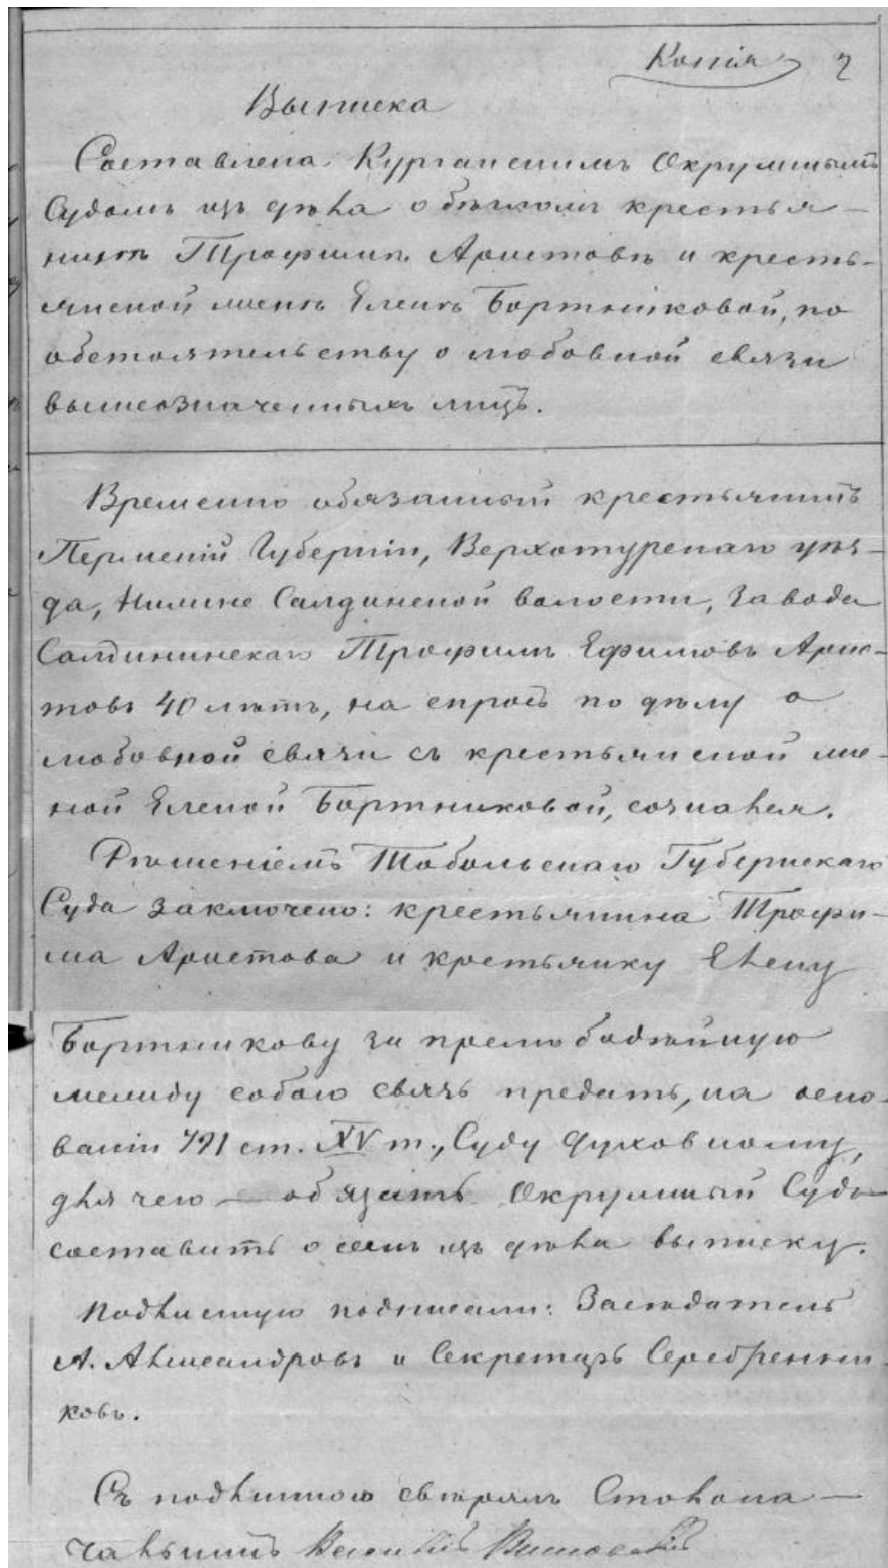 Копія 2
Выписка
Составлена Курганскимъ Окружнымъ
Судомъ изъ дѣла о бѣгломъ крестья-
нинѣ Трофимѣ Аристовѣ и кресть-
янской женѣ Еленѣ Бортниковой, по
обстоятельству о любовной связи
вышеозначенныхъ лицъ.
Временно обязанный крестьянинъ
Пермской Губерніи, Верхотурскаго уѣз-
да, Нижне Салдинской волости, завода
Салдининскаго Трофимъ Ефимовъ Арис-
товъ 40 лѣтъ, на спросъ по дѣлу о
любовной связи съ крестьянской же-
ной Еленой Бортниковой, сознался.
Рѣшеніемъ Тобольскаго Губернскаго
Суда заключено: крестьянина Трофи-
ма Аристова и крстьянку Елену
Бортникову за прелюбодѣйную
между собою связь предать, на осно-
ваніи 791 ст. XV т., Суду духовному,
для чего — обязать Окружный Судъ
составить о семъ изъ дѣла выписку.
Подлинную подписали: Засѣдатель
А. Александровъ и Секретарь Серебренни-
ковъ.
Съ подлинною свѣрялъ Столона-
чальникъ